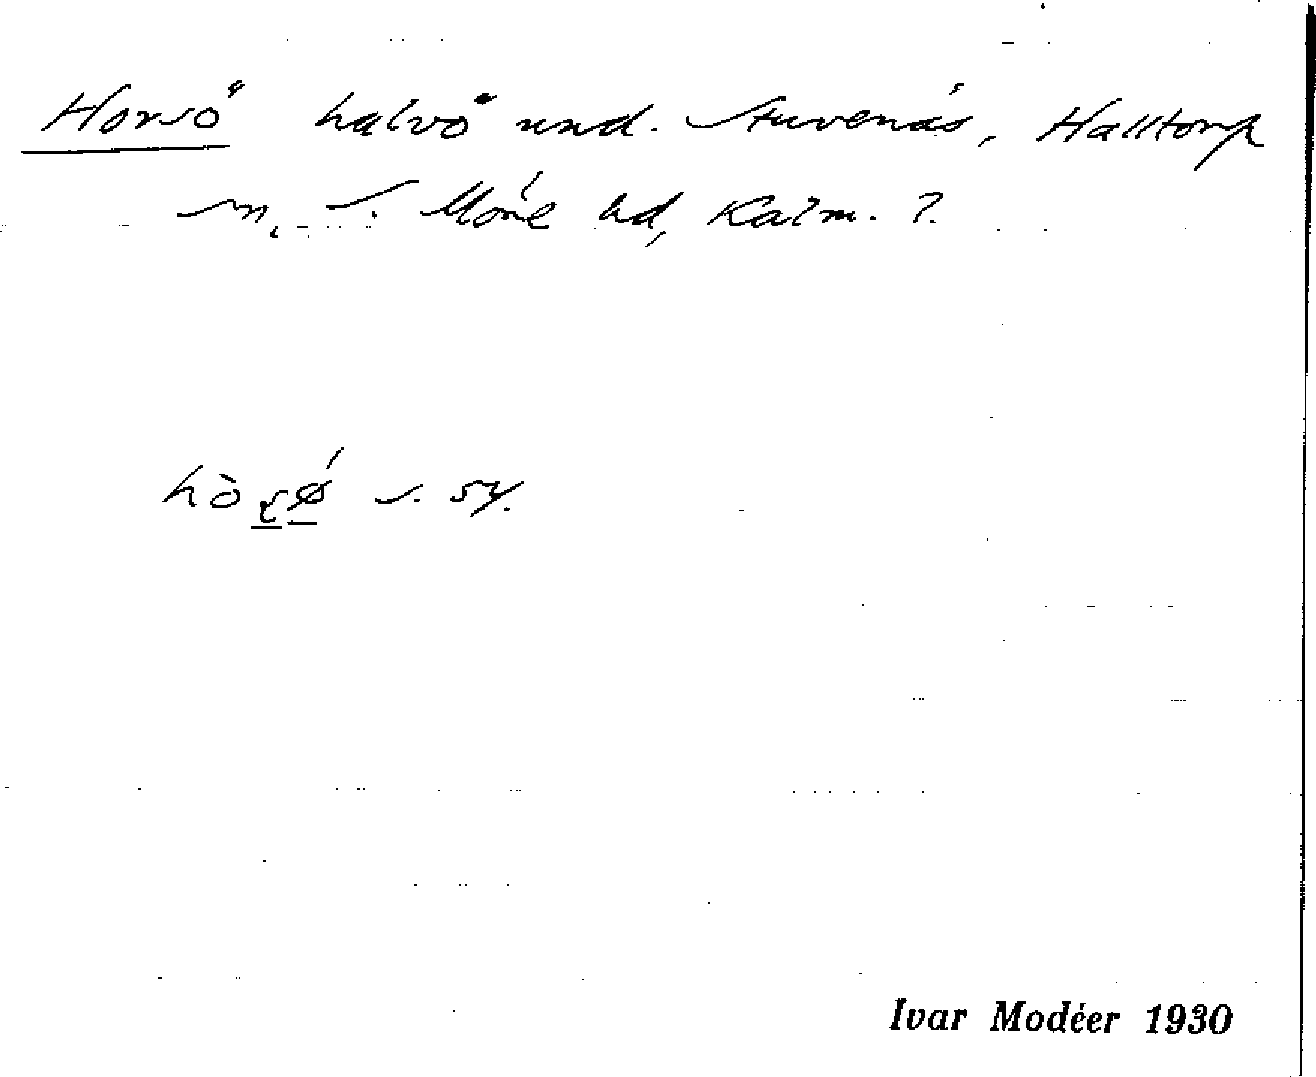 Horsö halvö und. Stuvenäs, Halltorp
sn, S. Möre hd, Kalm. l.
s. sy.
Ivar Modéer 1930